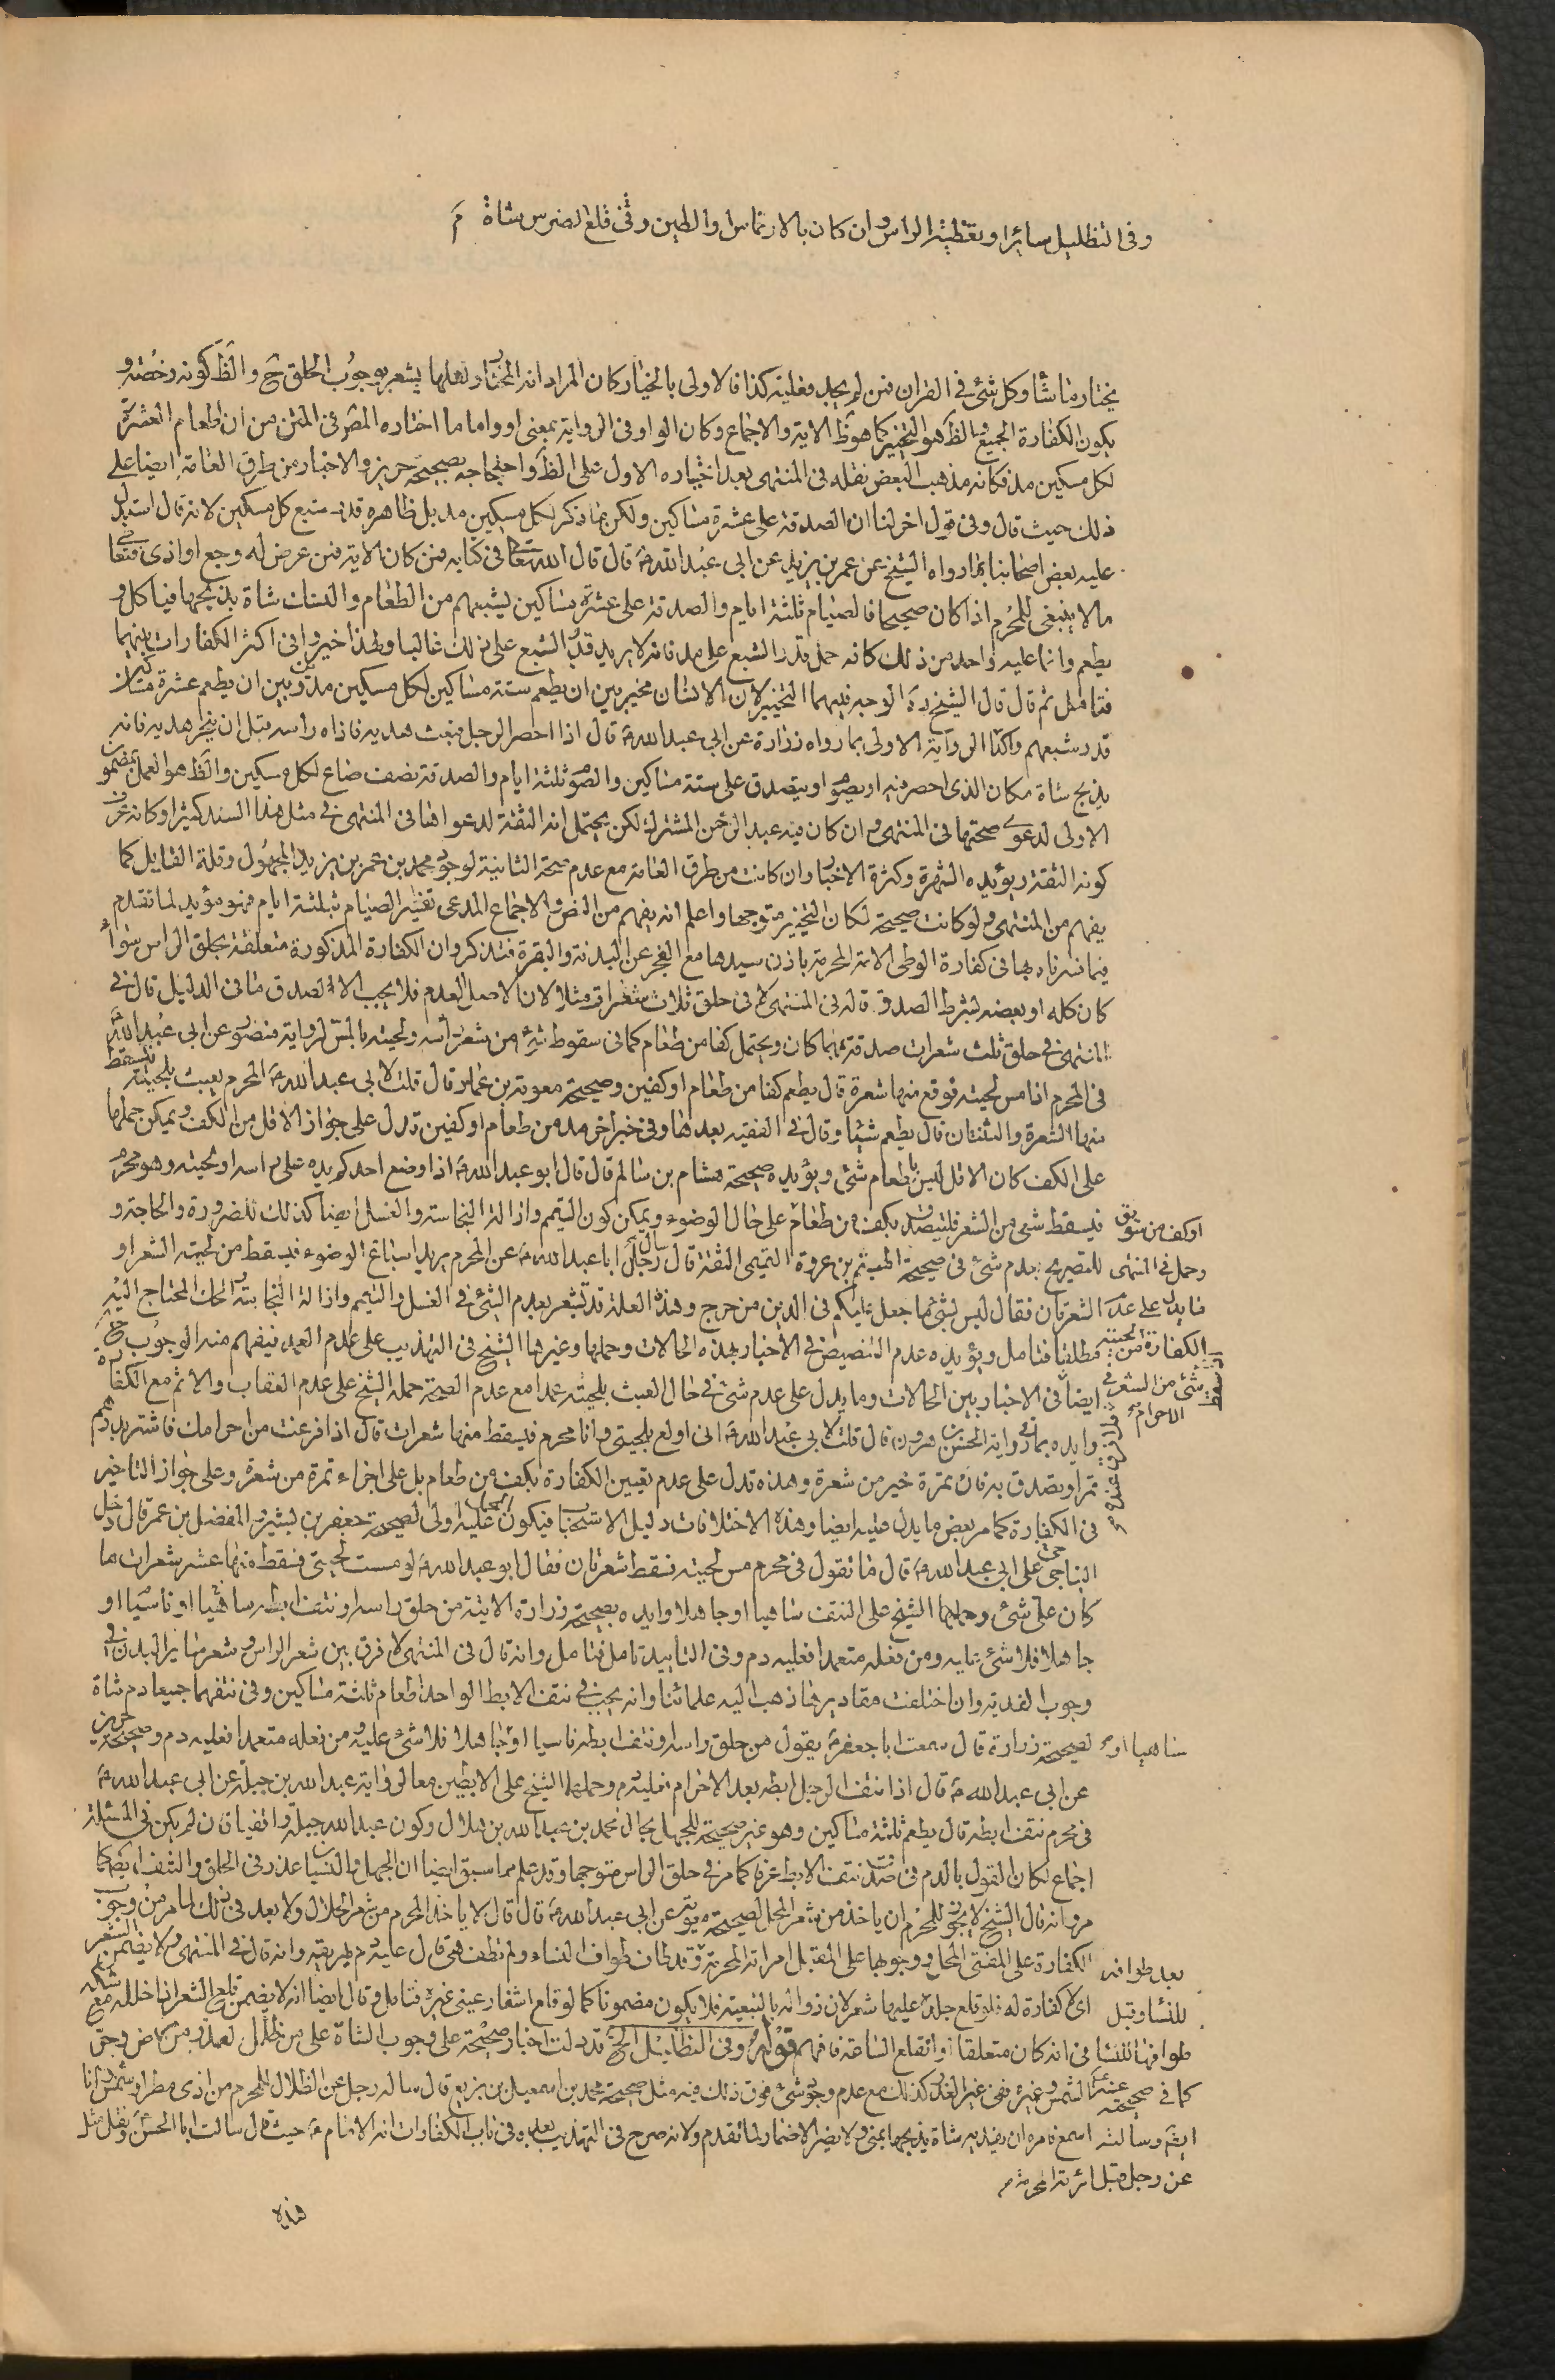 وفى التظليل سائرا وتغطية الراس وان كان بالارتماس والطين وفى قلع الضرس شاة م
يختار ما شاء وكل شئ فى القران فمن لم يجد فعليه كذا فالاولى بالخيار كان المراد انه المختار ولعلها يشعر بوجوب الحلق ح والظ كونه رخصة و
يكون الكفارة الجميع والظ هو التخيير كما هو ظ الاية والاجماع وكان الواو فى الرواية بمعنى او واما ما اختاره المصر فى المتن من ان طعام العشرة
لكل مسكين مد فكانه مذهب البعض نقله فى المنتهى بعد اختياره الاول على الظ واحتجاجه بصحيحة حريز والاخبار من طرق العامة ايضا على
ذلك حيث قال وفى قول اخر لنا ان الصدقة على عشرة مساكين ولكن ما ذكر لكل مسكين مد بل ظاهره قدر شبع كل مسكين لانه قال استدل
عليه بعض اصحابنا بما رواه الشيخ عن عمر بن يزيد عن ابى عبد الله ع قال قال الله تعا فى كتابه فمن كان الاية فمن عرض له وجع او اذى فتعا
ما لا ينبغى للمحرم اذا كان صحيحا فالصيام ثلثة ايام والصدقة على عشرة مساكين يشبعهم من الطعام والنسك شاة يذبحها فياكل و
يطعم وانما عليه واحد من ذلك كانه حمل قدر الشبع على مد فانه لا يريد قدر الشبع على ذلك غالبا ولهذا خيروا فى اكثر الكفارات بينهما
فتامل ثم قال قال الشيخ ره الوجه فيهما التخيير لان الانسان مخير بين ان يطعم ستة مساكين لكل مسكين مدين وبين ان يطعم عشرة مساكين
قدر شبعهم واكد الرواية الاولى بما رواه زرارة عن ابى عبد الله ع قال اذا احصر الرجل فبعث هديه فاذاه راسه قبل ان ينحر هديه فانه
يذبح شاة مكان الذى احصر فيه او يصوم او يتصدق على ستة مساكين والصوم ثلثة ايام والصدقة نصف صاع لكل مسكين والظ هو العمل بمضمون
الاولى لدعوى صحتها فى المنتهى وان كان فيه عبد الرحمن المشترك لكن يحتمل انه الثقة لدعواها فى المنتهى فى مثل هذا السند كثيرا وكانه عرف
كونه الثقة ويؤيده الشهرة وكثرة الاخبار وان كانت من طرق العامة مع عدم صحة الثانية لوجود محمد بن عمر بن يزيد المجهول وقلة القايل كما
يفهم من المنتهى ولو كانت صحيحة لكان التخيير متوجها واعلم انه يفهم من النص والاجماع المدعى تفسير الصيام بثلثة ايام فهو مؤيد لما تقدم
فيما فسرناه بها فى كفارة الوطى الامة المحرمة باذن سيدها مع العجز عن البدنة والبقرة فتذكر وان الكفارة المذكورة متعلقة بحلق الراس سواء
كان كله او بعضه بشرط الصدق قاله فى المنتهى لا فى حلق ثلاث شعرات مثلا لان الاصل العدم فلا يجب الا لصدق ما فى الدليل قال فى
المنتهى فى حلق ثلث شعرات صدقة بهما كان ويحتمل كفا من طعام كما فى سقوط شئ من شعر راسه ولحيته بالمس لرواية منصور عن ابى عبد الله ع
فى المحرم اذا مس لحيته فوقع منها شعرة قال يطعم كفا من طعام او كفين وصحيحة معوية بن عمار قال قلت لابى عبد الله ع المحرم يعبث بلحيته فيسقط
منها الشعرة والثنتان قال يطعم شيئا وقال فى الفقيه بعدها وفى خبر اخر مد من طعام او كفين تدل على جواز الاقل من الكف ويمكن حملها
على الكف كان الاقل ليس باطعام شئ ويؤيده صحيحة هشام بن سالم قال قال ابو عبد الله ع اذا وضع احدكم يده على راسه او لحيته وهو محرم
فيسقط شئ من الشعر فليتصدق بكف من طعام على حال الوضوء ويمكن كون التيمم وازالة النجاسة والغسل ايضا كذلك للضرورة والحاجة و
او كف من سويق
للتصريح بعدم شئ فى صحيحة الهيثم بن عروة التميمى الثقة قال سال رجل ابا عبد الله ع عن المحرم يريد اسباغ الوضوء فيسقط من لحيته الشعر او
وحمل فى المنتهى
الشعرتان فقال ليس بشئ ما جعل عليكم فى الدين من حرج وهذه العلة قد تشعر بعدم الشئ فى الغسل والتيمم وازالة النجاسة الحك المحتاج اليه
ما يدل على عدم
مطلقا فتامل ويؤيده عدم التنصيص فى الاخبار بهذه الحالات وحملها وغيرها الشيخ فى التهذيب على عدم العمد فيفهم منه الوجوب ح
الكفارة من لحيته
ايضا فى الاخبار بين الحالات وما يدل على عدم شئ فى حال العبث بلحيته عمدا مع عدم الصحة حمله الشيخ على عدم العقاب والاثم مع الكفارة
شئ من الشعر فى
الاحرام
وايده بما فى رواية الحسن بن هرون قال قلت لابى عبد الله ع انى اولع بلحيتى وانا محرم فيسقط منها شعرات قال اذا فرغت من احرامك فاشتر بدرهم
تمرا وتصدق به فان تمرة خير من شعرة وهذه تدل على عدم تعيين الكفارة بكف من طعام بل على اجزاء تمرة من شعرة وعلى جواز التاخير
فى الكفارة كما مر بعض ما يدل عليه ايضا وهذه الاختلافات دليل الاستحباب فيكون الحمل عليه اولى لصحيحة جعفر بن بشير والمفضل بن عمر قال دخل
الناجى على ابى عبد الله ع قال ما تقول فى محرم مس لحيته فسقط شعرتان فقال ابو عبد الله ع لو مسست لحيتى فسقط منها عشر شعرات ما
كان على شئ وحملهما الشيخ على النتف ساهيا او جاهلا وايده بصحيحة زرارة الاتية من حلق راسه او نتف ابطه ساهيا او ناسيا او
جاهلا فلا شئ عليه ومن فعله متعمدا فعليه دم وفى التاييد تامل فتامل وانه قال فى المنتهى لا فرق بين شعر الراس وشعر سائر البدن فى
وجوب الفدية وان اختلفت مقاديرها ذهب اليه علمائنا وانه يجب فى نتف الابط الواحد اطعام ثلثة مساكين وفى نتفهما جميعا دم شاة
لصحيحة زرارة قال سمعت ابا جعفر ع يقول من حلق راسه او نتف ابطه ناسيا او جاهلا فلا شئ عليه ومن فعله متعمدا فعليه دم وصحيحة حريز
ساهيا او
عن ابى عبد الله ع قال اذا نتف الرجل ابطه بعد الاحرام فعليه دم وحملهما الشيخ على الابطين معا لرواية عبد الله بن جبلة عن ابى عبد الله ع
فى محرم نتف ابطه قال يطعم ثلثة مساكين وهو غير صحيحة للجهل بحال محمد بن عبد الله بن هلال وكون عبد الله جبلة واقفيا فان لم يكن فى المسئلة
اجماع لكان القول بالدم فى صدق نتف الابط عرفا كما مر فى حلق الراس متوجها وقد علم مما سبق ايضا ان الجهل والنسيان عذر فى الحلق والنتف ايضا كما
مر وانه قال الشيخ لا يجوز للمحرم ان ياخذ من شعر المحل لصحيحة معوية عن ابى عبد الله ع قال قال لا ياخذ المحرم من شعر الحلال ولا بعد فى ذلك لما مر من وجوب
الكفارة على المفتى المحل ووجوبها على المقبل امراته المحرمة وقد طاف طواف النساء ولم تطف هى قال عليه دم يهريقه وانه قال فى المنتهى ولا يضمن الشعر
بعد طوافه
اى لا كفارة له فلو قلع جلدة عليها شعر لان زواله بالتبعية فلا يكون مضمونا كما لو قلع اشفار عينى غيره فتامل وقال ايضا انه لا يضمن قلع الشعر اذا خلله مع شكه
للنساء وقبل
فى انه كان متعلقا او انقلع الساعة فافهم قوله وفى التظليل الخ قد دلت اخبار صحيحة على وجوب الشاة على من ظلل لعذر من مرض وحر
طوافها للنساء
الشمس وغيره ففى غير العذر كذلك مع عدم وجود شئ فوق ذلك فيه مثل صحيحة محمد بن اسمعيل بن بزيع قال ساله رجل عن الظلال للمحرم من اذى مطر او شمس وانا
كما فى صحيحة
اسمع فامره ان يفديه شاة يذبحها بمنى ولا يضر الاضمار لما تقدم ولانه صرح فى التهذيب بعده فى باب الكفارات انه الامام ع حيث قال سالت ابا الحسن ع ونقل مثل
وسالته
عن رجل قبل امراته المحرمة
هذه